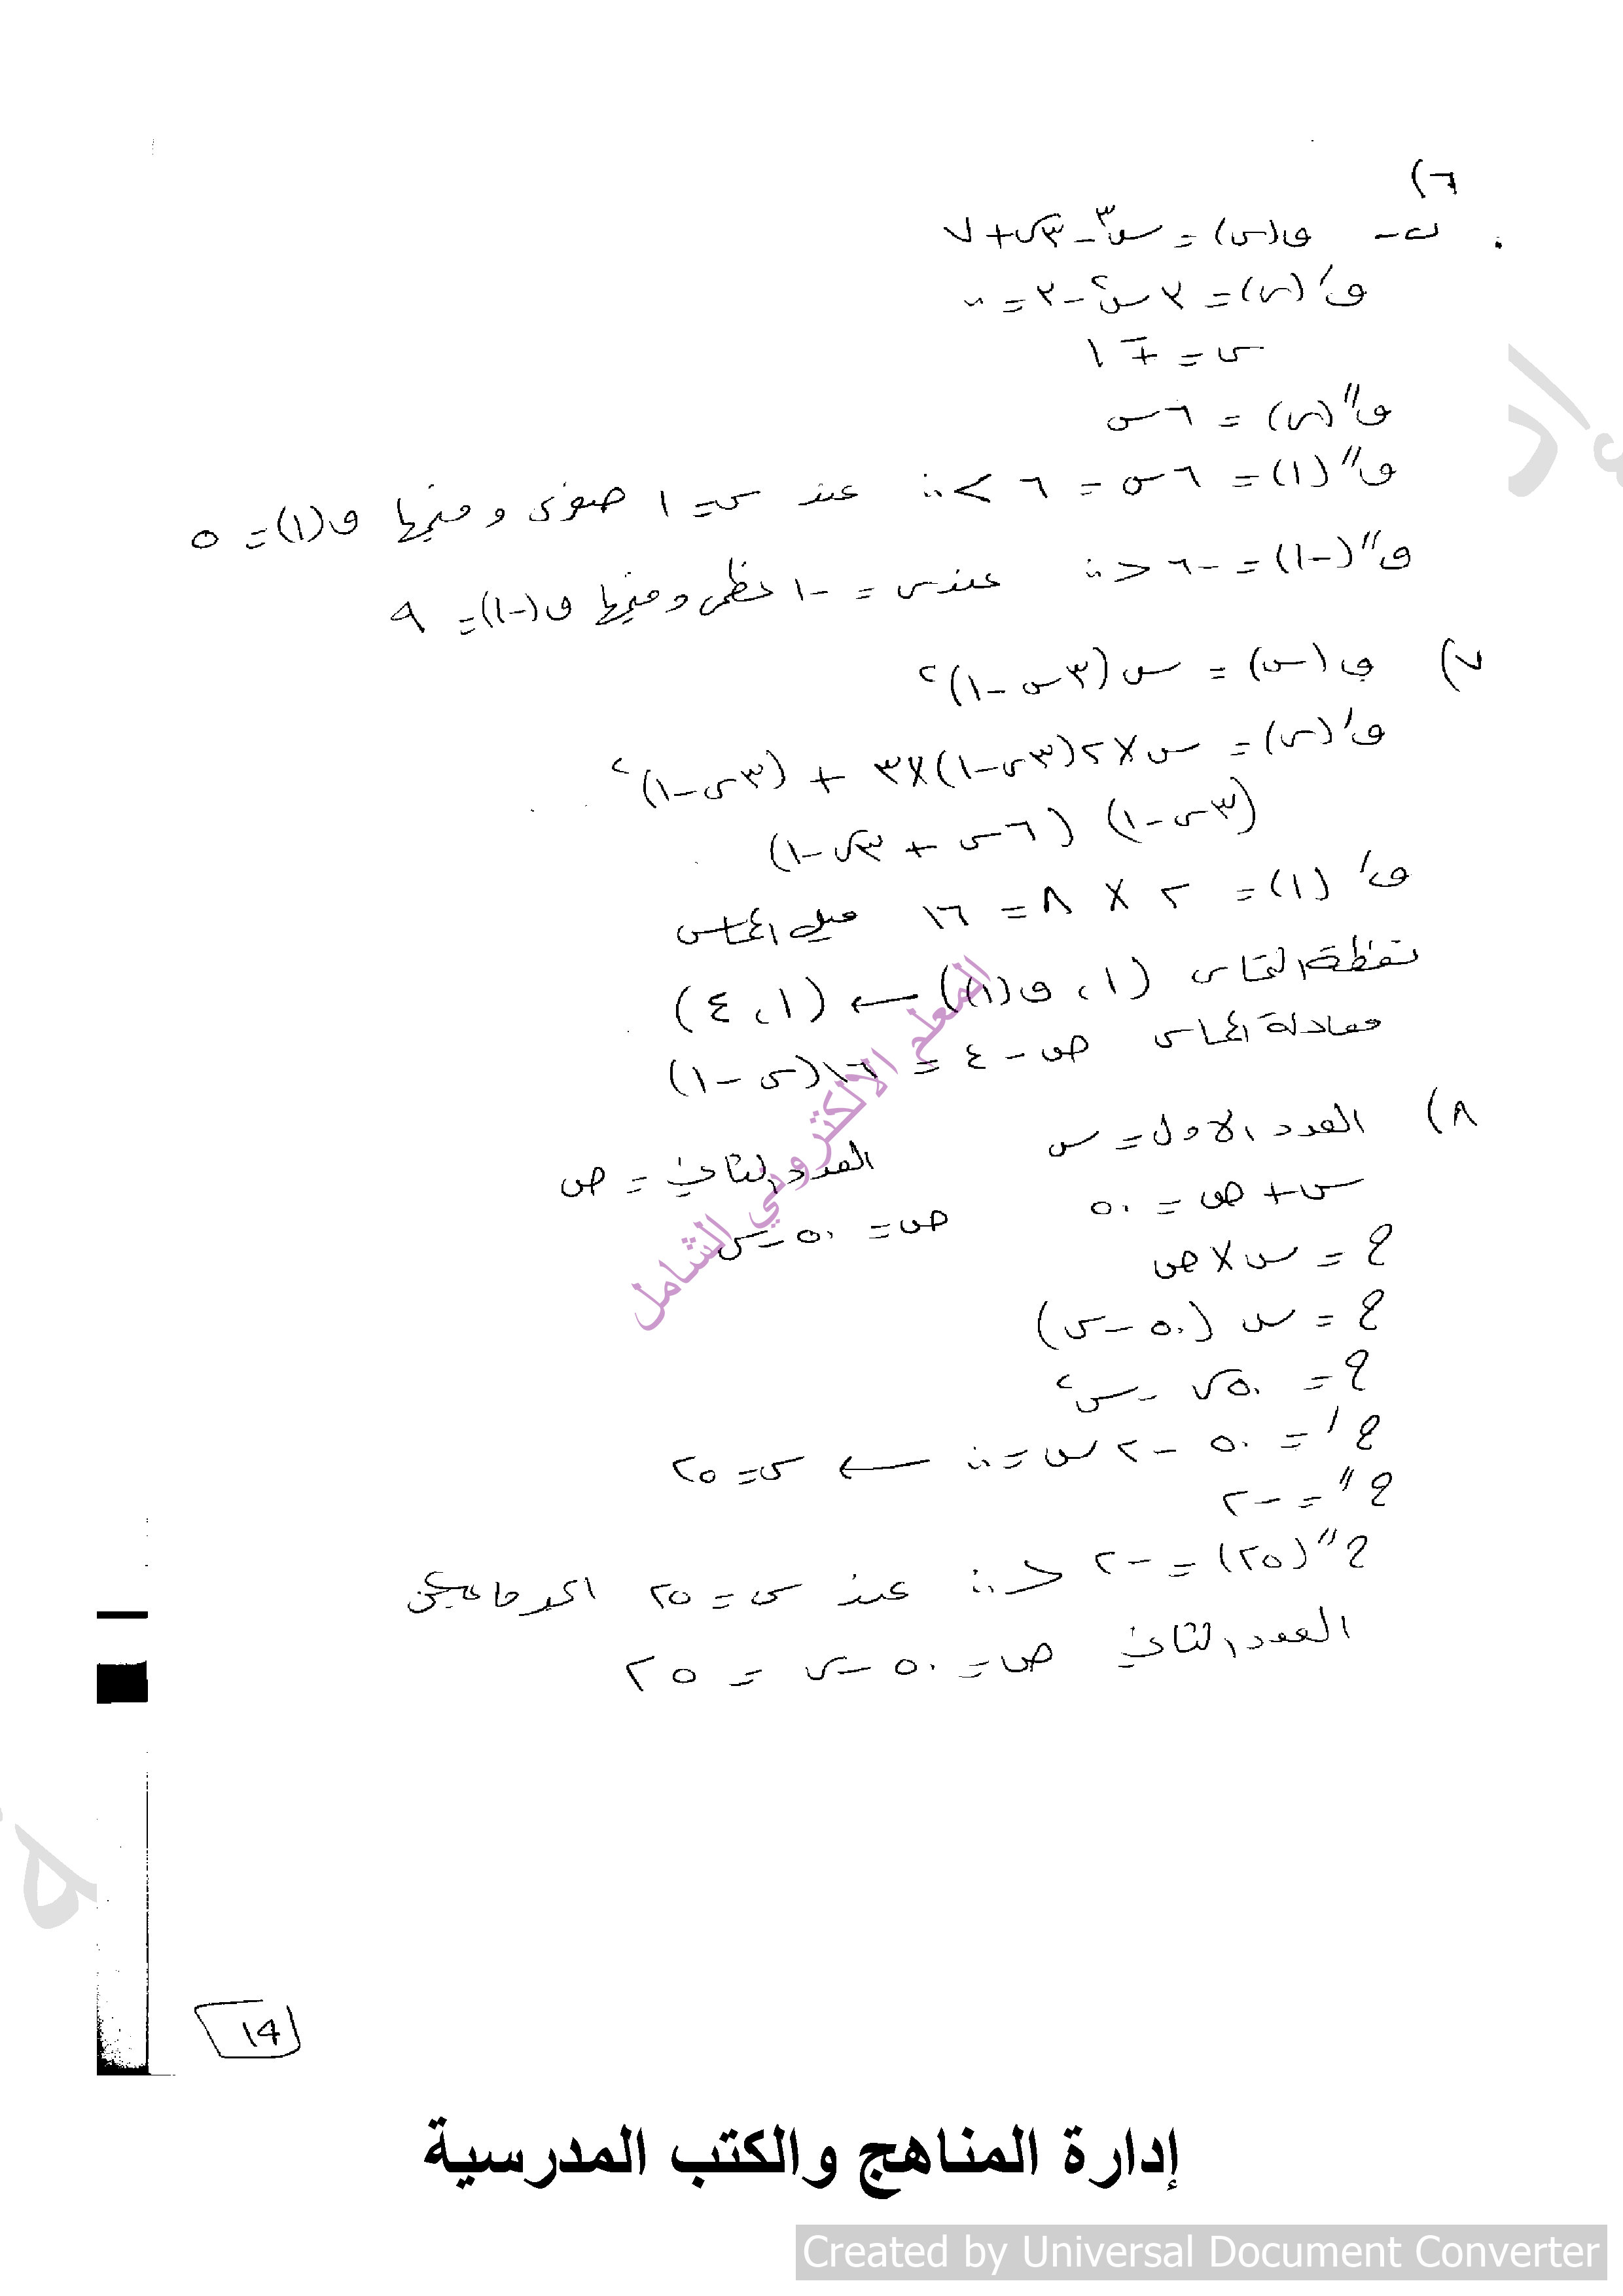 ٦)
ب- ق(س) = س٣ - ٣س + ٧
ق/(س) = ٣س٢ - ٣ = ٠
س = ∓ ١
ق//(س) = ٦س
ق//(١) = ٦س = ٦ > ٠ ∴ عند س = ١ صغرى وقيمتها ق(١) = ٥
ق//(-١) = -٦ < ٠ ∴ عند س = -١ عظمى وقيمتها ق(-١) = ٩
٧) ق(س) = س(٣س - ١)٢
ق/(س) = س×٢(٣س-١)×٣ + (٣س-١)٢
(٣س-١) (٦س + ٣س-١)
ق/(١) = ٢ × ٨ = ١٦ ميل المماس
نقطة التماس (١، ق(١)) ← (١، ٤)
معادلة المماس ص - ٤ = ١٦(س - ١)
٨) العدد الاول = س العدد الثاني = ص
س + ص = ٥٠ ص = ٥٠ - س
ع = س × ص
ع = س (٥٠ - س)
ع = ٥٠س - س٢
ع/ = ٥٠ - ٢س = ٠ ← س = ٢٥
ع// = -٢
ع//(٢٥) = -٢ < ٠ ∴ عند س = ٢٥ اكبر ما يمكن
العدد الثاني ص = ٥٠ - س = ٢٥
المعلم الالكتروني الشامل
١٩
إدارة المناهج والكتب المدرسية
Created by Universal Document Converter